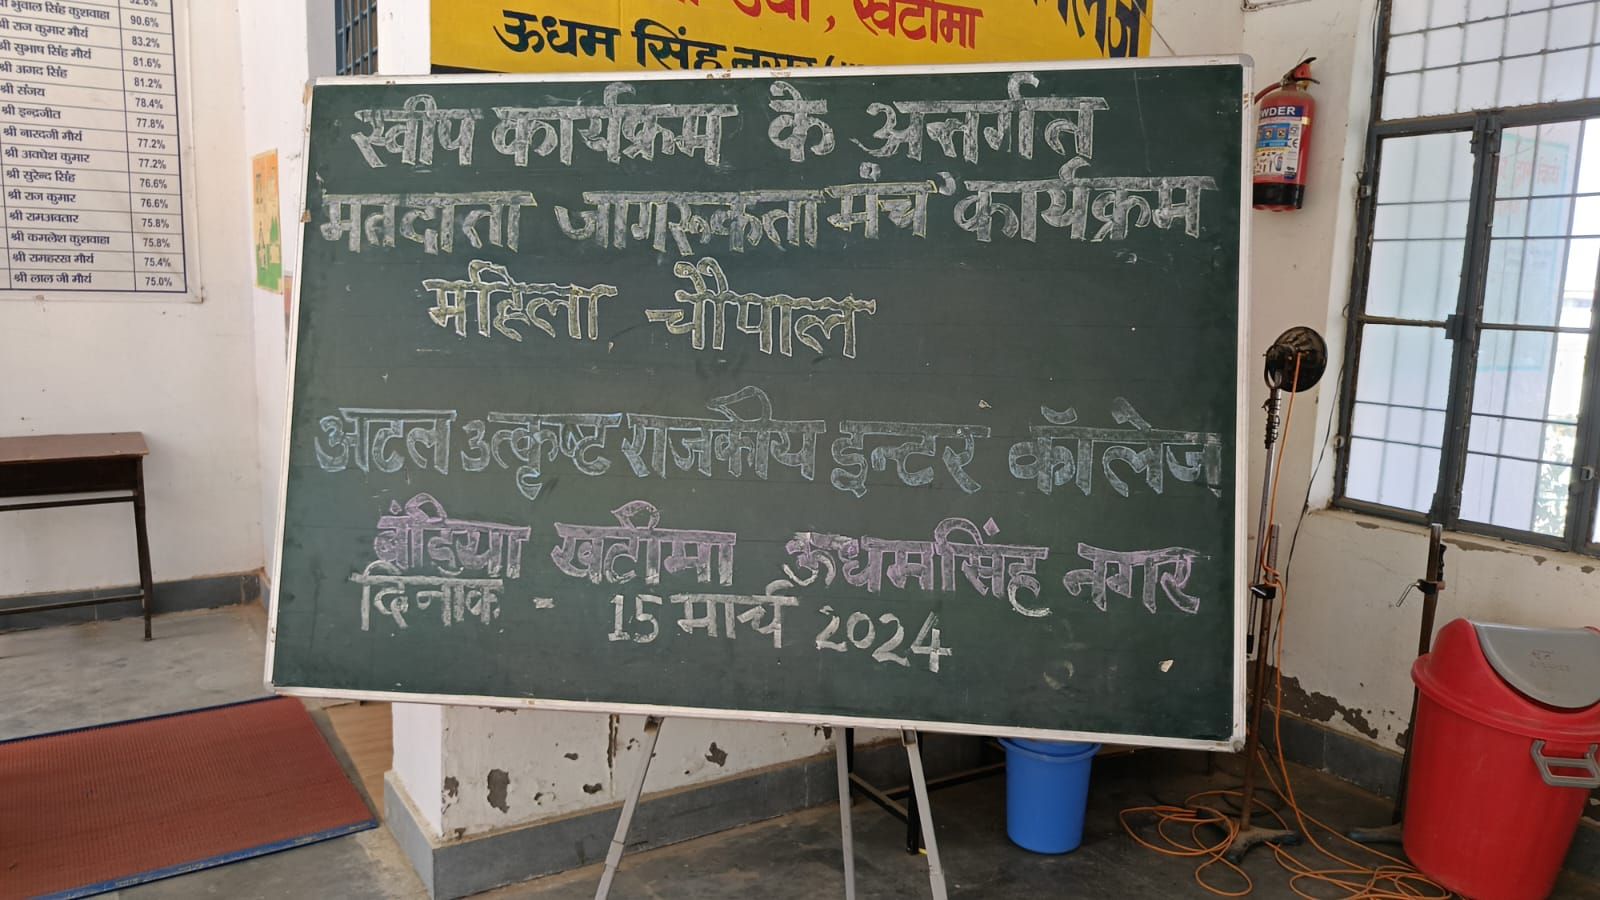 ऊधम सिंह नगर
खटीमा
श्री भुवाल सिंह कुशवाहा 90.6%
श्री राज कुमार मौर्य 83.2%
श्री सुभाष सिंह मौर्य 81.6%
श्री अगद सिंह 81.2%
श्री संजय 78.4%
श्री इन्द्रजीत 77.8%
श्री नारदजी मौर्य 77.2%
श्री अवधेश कुमार 77.2%
श्री सुरेन्द सिंह 76.6%
श्री राज कुमार 76.6%
श्री रामअवतार 75.8%
श्री कमलेश कुशवाहा 75.8%
श्री रामहरख मौर्य 75.4%
श्री लाल जी मौर्य 75.0%
स्वीप कार्यक्रम के अन्तर्गत
मतदाता जागरूकता मंच कार्यक्रम
महिला चौपाल
अटल उत्कृष्ट राजकीय इन्टर कॉलेज
बंडिया खटीमा ऊधमसिंह नगर
दिनॉक - 15 मार्च 2024